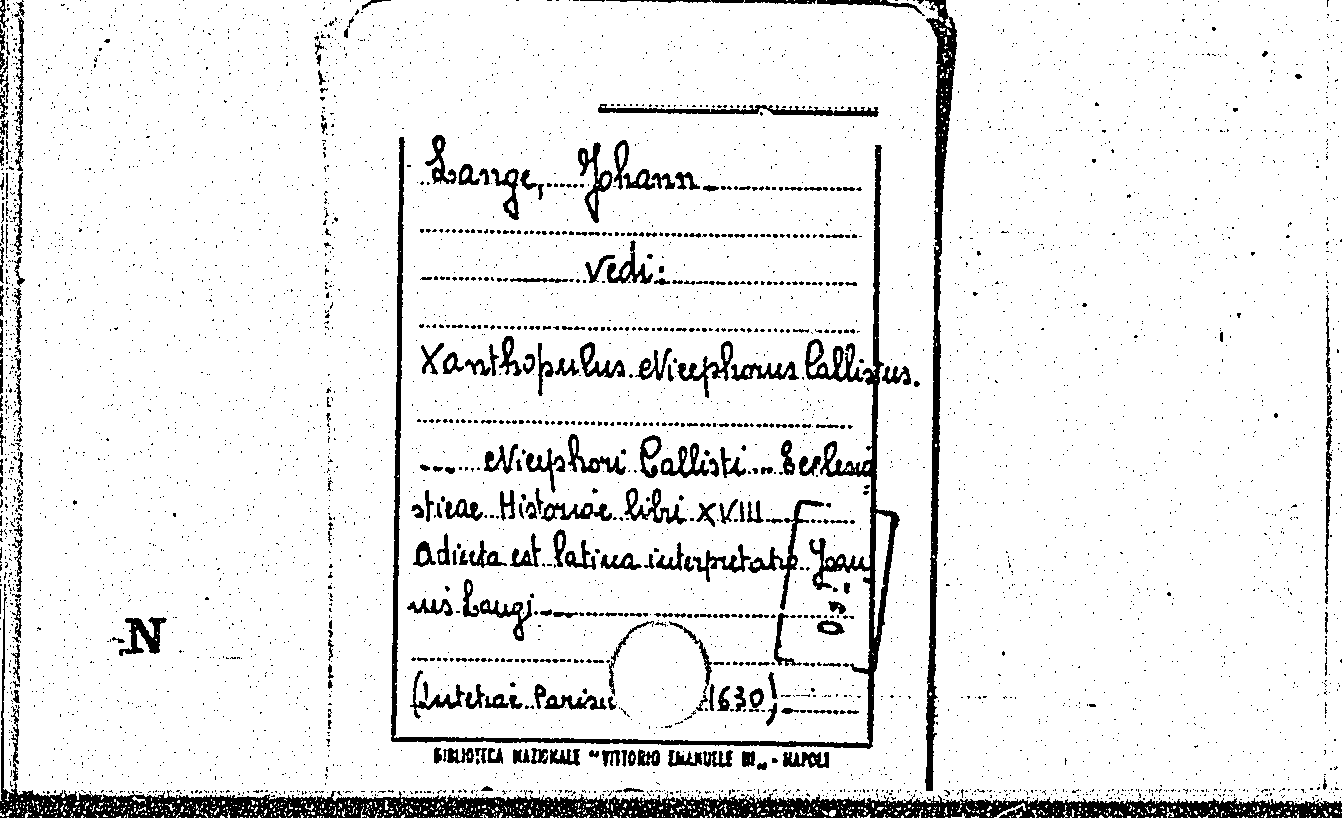 Lange, Johann
vedi:
Xanthopulus Nicephorus Callistus.
... Nicephori Callisti... Ecclesia
sticae Historiae libri XVIII
Adiecta est latina interpretatio Joan
nis Langi
(Lutetiae Parisi 1630)
N
BIBLIOTECA NAZIONALE "VITTORIO EMANUELE III" - NAPOLI